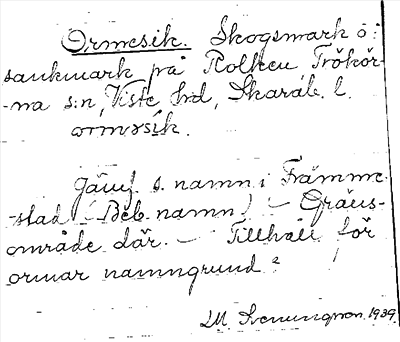 Ormesik. Skogsmark o:
sankmark på Rolken Trökör-
-na s:n, Viste hrd, Skarab. l.
ormsik.
Jämf. s. namn i Främme-
-stad (Beb. namn) – Gräns-
område där. – Tillhåll för
ormar namngrund?
M Svenungson 1939